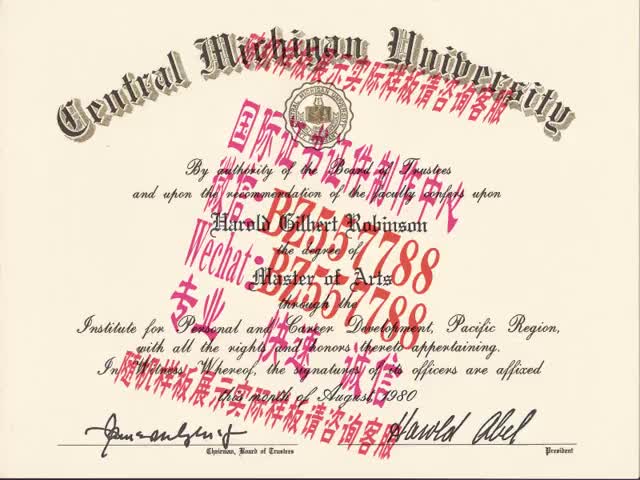 Central Michigan University
随机样板展示实际样板请咨询客服
By authority of the Board of Trustees
and upon the recommendation of the faculty confers upon
Harold Gilbert Robinson
the degree of
Master of Arts
through the
Institute for Personal and Career Development, Pacific Region,
with all the rights and honors thereto appertaining.
In Witness Whereof, the signatures of its officers are affixed
this month of August, 1980
国际证书证件制作中心
微信:BZ557788
Wechat:BZ557788
专业 快速 诚信
随机样板展示实际样板请咨询客服
Harold Abel
Chairman, Board of Trustees
President